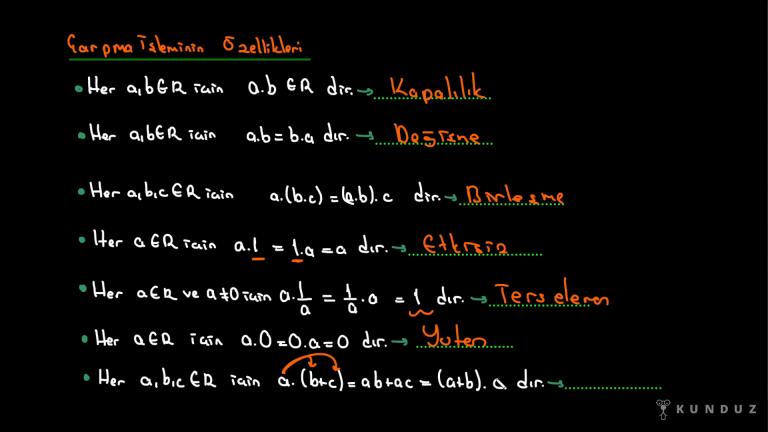 Çarpma İşleminin Özellikleri
• Her a,b∈R için a.b ∈R dir. → Kapalılık
• Her a,b∈R için a.b = b.a dır. → Değişme
• Her a,b,c ∈R için a.(b.c) = (a.b).c dir. → Birleşme
• Her a∈R için a.1 = 1.a = a dır. → Etkisiz
• Her a∈R ve a≠0 için a.1/a = 1/a.a = 1 dir. → Ters eleman
• Her a∈R için a.0 = 0.a = 0 dır. → Yutan
• Her a,b,c ∈R için a.(b+c) = ab+ac = (a+b).a dır. →
KUNDUZ